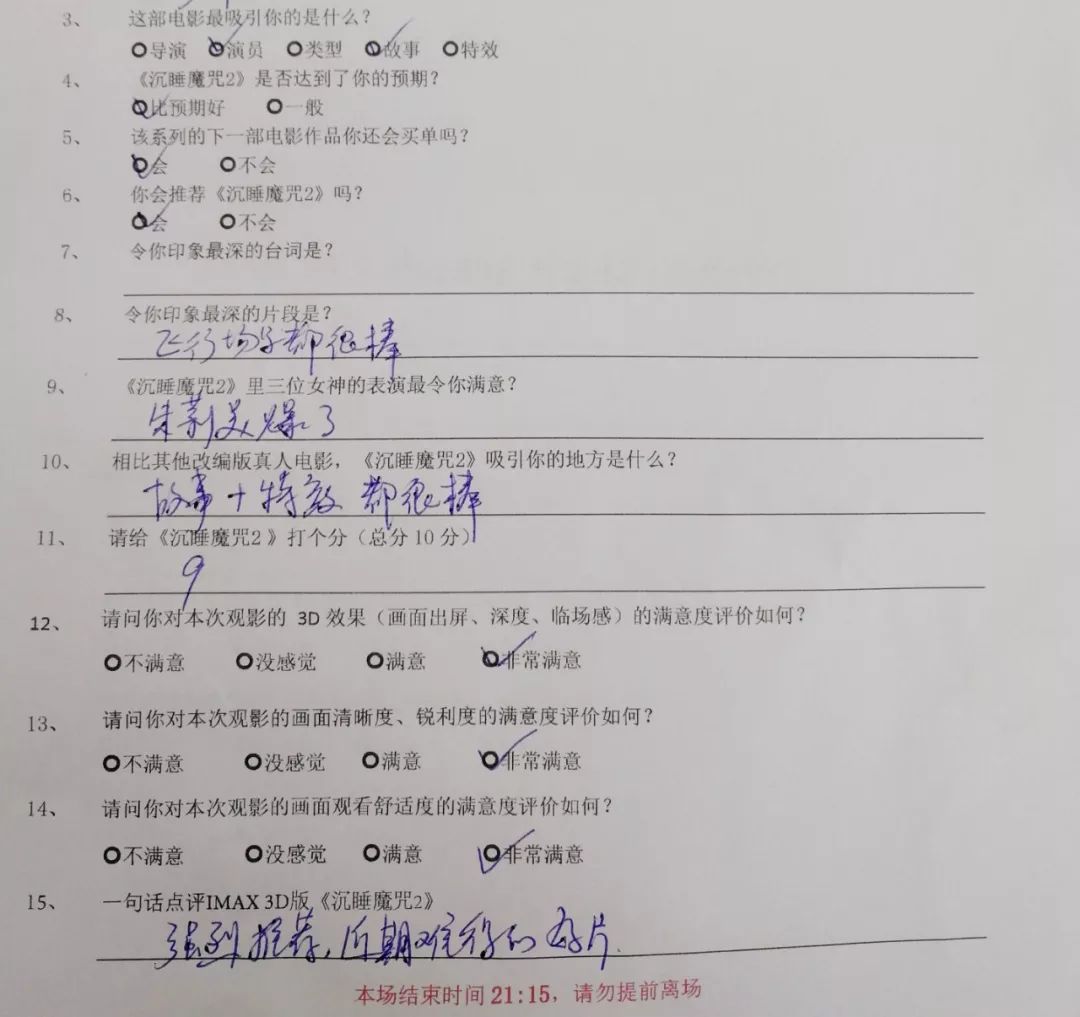 3、 这部电影最吸引你的是什么？
导演 演员 类型 故事 特效
4、 《沉睡魔咒2》是否达到了你的预期？
比预期好 一般
5、 该系列的下一部电影作品你还会买单吗？
会 不会
6、 你会推荐《沉睡魔咒2》吗？
会 不会
7、 令你印象最深的台词是？
8、 令你印象最深的片段是？
飞行场景都很棒
9、 《沉睡魔咒2》里三位女神的表演最令你满意？
朱莉美爆了
10、 相比其他改编版真人电影，《沉睡魔咒2》吸引你的地方是什么？
故事+特效 都很棒
11、 请给《沉睡魔咒2 》打个分（总分10分）
9
12、 请问你对本次观影的 3D 效果（画面出屏、深度、临场感）的满意度评价如何？
不满意 没感觉 满意 非常满意
13、 请问你对本次观影的画面清晰度、锐利度的满意度评价如何？
不满意 没感觉 满意 非常满意
14、 请问你对本次观影的画面观看舒适度的满意度评价如何？
不满意 没感觉 满意 非常满意
15、 一句话点评IMAX 3D版《沉睡魔咒2》
强烈推荐，近期难得的好片.
本场结束时间 21:15，请勿提前离场